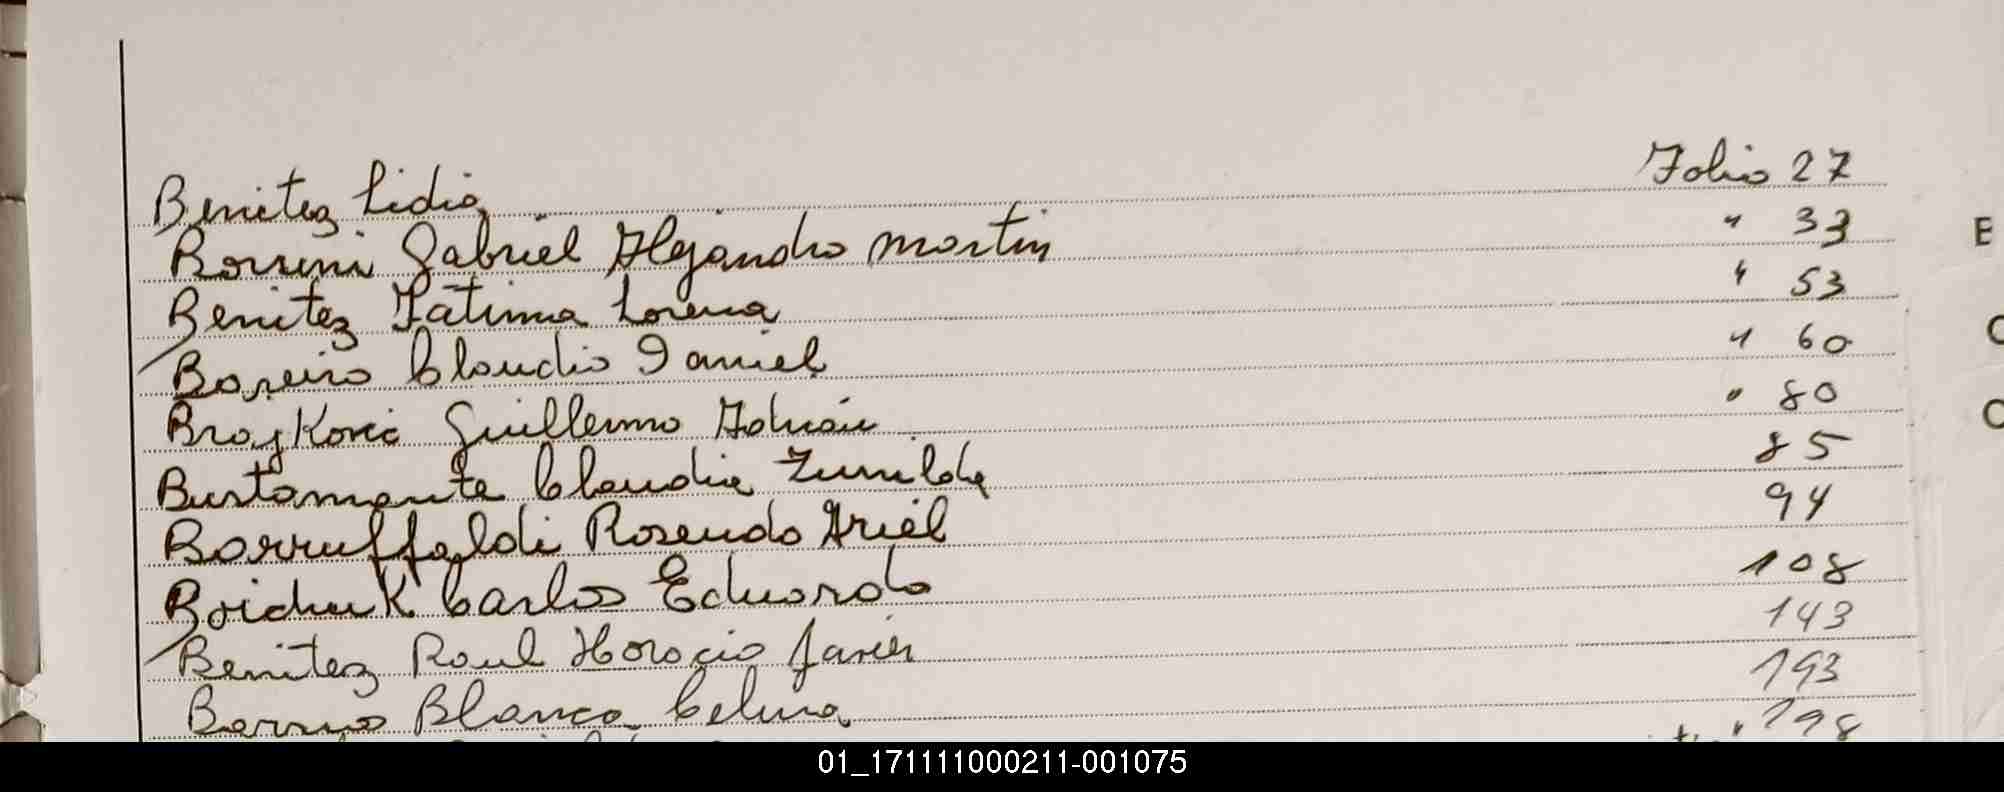 Benitez Lidia Folio 27
Borrini Gabriel Alejandro Martin " 33
Benitez Fatima Lorena " 53
Boreiro Claudio Daniel " 60
Brajkovic Guillermo Adrián " 80
Bustamante Claudia Zunilda 85
Barruffaldi Rosendo Ariel 94
Boichuk Carlos Eduardo 108
Benitez Raul Horacio Javier 143
Barrios Blanca Celina 193
198
E
C
C
01_171111000211-001075